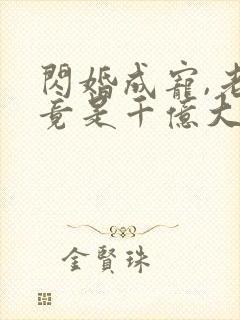 閃婚成寵,老
竟是千億大
金賢珠